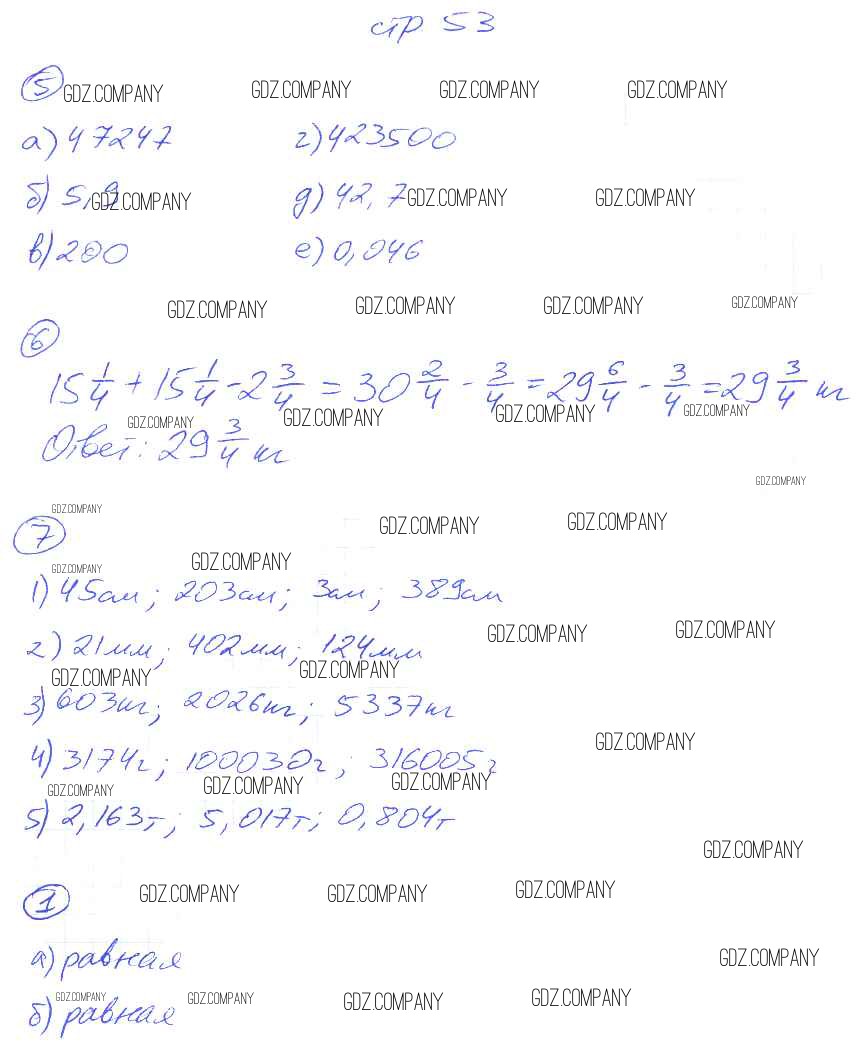 стр 53
5
GDZ.COMPANY GDZ.COMPANY GDZ.COMPANY GDZ.COMPANY
а) 47247 г) 423500
б) 5,9 д) 42,7
GDZ.COMPANY GDZ.COMPANY GDZ.COMPANY
в) 200 е) 0,046
GDZ.COMPANY GDZ.COMPANY GDZ.COMPANY GDZ.COMPANY
6
15 1/4 + 15 1/4 - 2 3/4 = 30 2/4 - 3/4 = 29 6/4 - 3/4 = 29 3/4 кг
GDZ.COMPANY GDZ.COMPANY GDZ.COMPANY GDZ.COMPANY
Ответ: 29 3/4 кг
GDZ.COMPANY
GDZ.COMPANY
7
GDZ.COMPANY GDZ.COMPANY
GDZ.COMPANY GDZ.COMPANY
1) 45см; 203см; 3см; 389см
GDZ.COMPANY GDZ.COMPANY
2) 21мм; 402мм; 124мм
GDZ.COMPANY GDZ.COMPANY
3) 603кг; 2026кг; 5337кг
GDZ.COMPANY
4) 3174г; 100030г; 316005г
GDZ.COMPANY GDZ.COMPANY GDZ.COMPANY
5) 2,163т; 5,017т; 0,804т
GDZ.COMPANY
1
GDZ.COMPANY GDZ.COMPANY GDZ.COMPANY
а) равная
GDZ.COMPANY
GDZ.COMPANY GDZ.COMPANY GDZ.COMPANY GDZ.COMPANY
б) равная